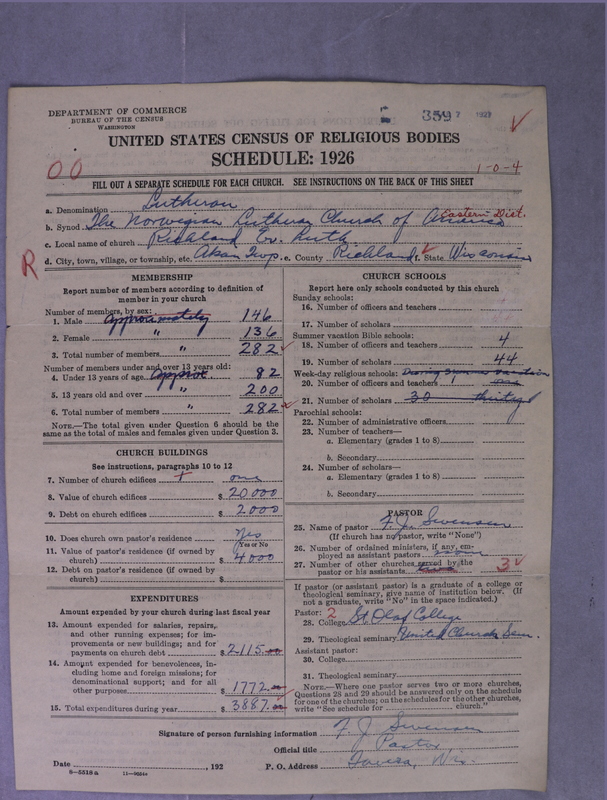 DEPARTMENT OF COMMERCE
BUREAU OF THE CENSUS
WASHINGTON
359 7 1927
UNITED STATES CENSUS OF RELIGIOUS BODIES
SCHEDULE: 1926
00
1-0-4
FILL OUT A SEPARATE SCHEDULE FOR EACH CHURCH. SEE INSTRUCTIONS ON THE BACK OF THIS SHEET
a. Denomination Lutheran
b. Synod The Norwegian Lutheran Church of America Eastern Dist.
c. Local name of church Richland Ev. Luth.
R d. City, town, village, or township, etc. Akan Twp. e. County Richland f. State Wisconsin
MEMBERSHIP
Report number of members according to definition of member in your church
Number of members, by sex:
1. Male approximately 146
2. Female " 136
3. Total number of members " 282
Number of members under and over 13 years old:
4. Under 13 years of age approx. 82
5. 13 years old and over " 200
6. Total number of members " 282
NOTE.—The total given under Question 6 should be the same as the total of males and females given under Question 3.
CHURCH BUILDINGS
See instructions, paragraphs 10 to 12
7. Number of church edifices 1 one
8. Value of church edifices $ 20000
9. Debt on church edifices $ 2000
10. Does church own pastor's residence? Yes
Yes or No
11. Value of pastor's residence (if owned by church) $ 4000
12. Debt on pastor's residence (if owned by church) $
EXPENDITURES
Amount expended by your church during last fiscal year
13. Amount expended for salaries, repairs, and other running expenses; for improvements or new buildings; and for payments on church debt $ 2115.00
14. Amount expended for benevolences, including home and foreign missions; for denominational support; and for all other purposes $ 1772.00
15. Total expenditures during year $ 3887.00
CHURCH SCHOOLS
Report here only schools conducted by this church
Sunday schools:
16. Number of officers and teachers
17. Number of scholars
Summer vacation Bible schools:
18. Number of officers and teachers 4
19. Number of scholars 44
Week-day religious schools:
20. Number of officers and teachers 1 one
21. Number of scholars 30 thirty
Parochial schools:
22. Number of administrative officers
23. Number of teachers—
a. Elementary (grades 1 to 8)
b. Secondary
24. Number of scholars—
a. Elementary (grades 1 to 8)
b. Secondary
PASTOR
25. Name of pastor F. J. Swenson
(If church has no pastor, write "None")
26. Number of ordained ministers, if any, employed as assistant pastors
27. Number of other churches served by the pastor or his assistants 3
If pastor (or assistant pastor) is a graduate of a college or theological seminary, give name of institution below. (If not a graduate, write "No" in the space indicated.)
Pastor: 2
28. College St. Olaf College
29. Theological seminary United Church Sem.
Assistant pastor:
30. College
31. Theological seminary
NOTE.—Where one pastor serves two or more churches, Questions 28 and 29 should be answered only on the schedule for one of the churches; on the schedules for the other churches, write "See schedule for church."
Signature of person furnishing information F. J. Swenson
Official title Pastor
Date , 192 P. O. Address Wis.
8-5518a 11-9864